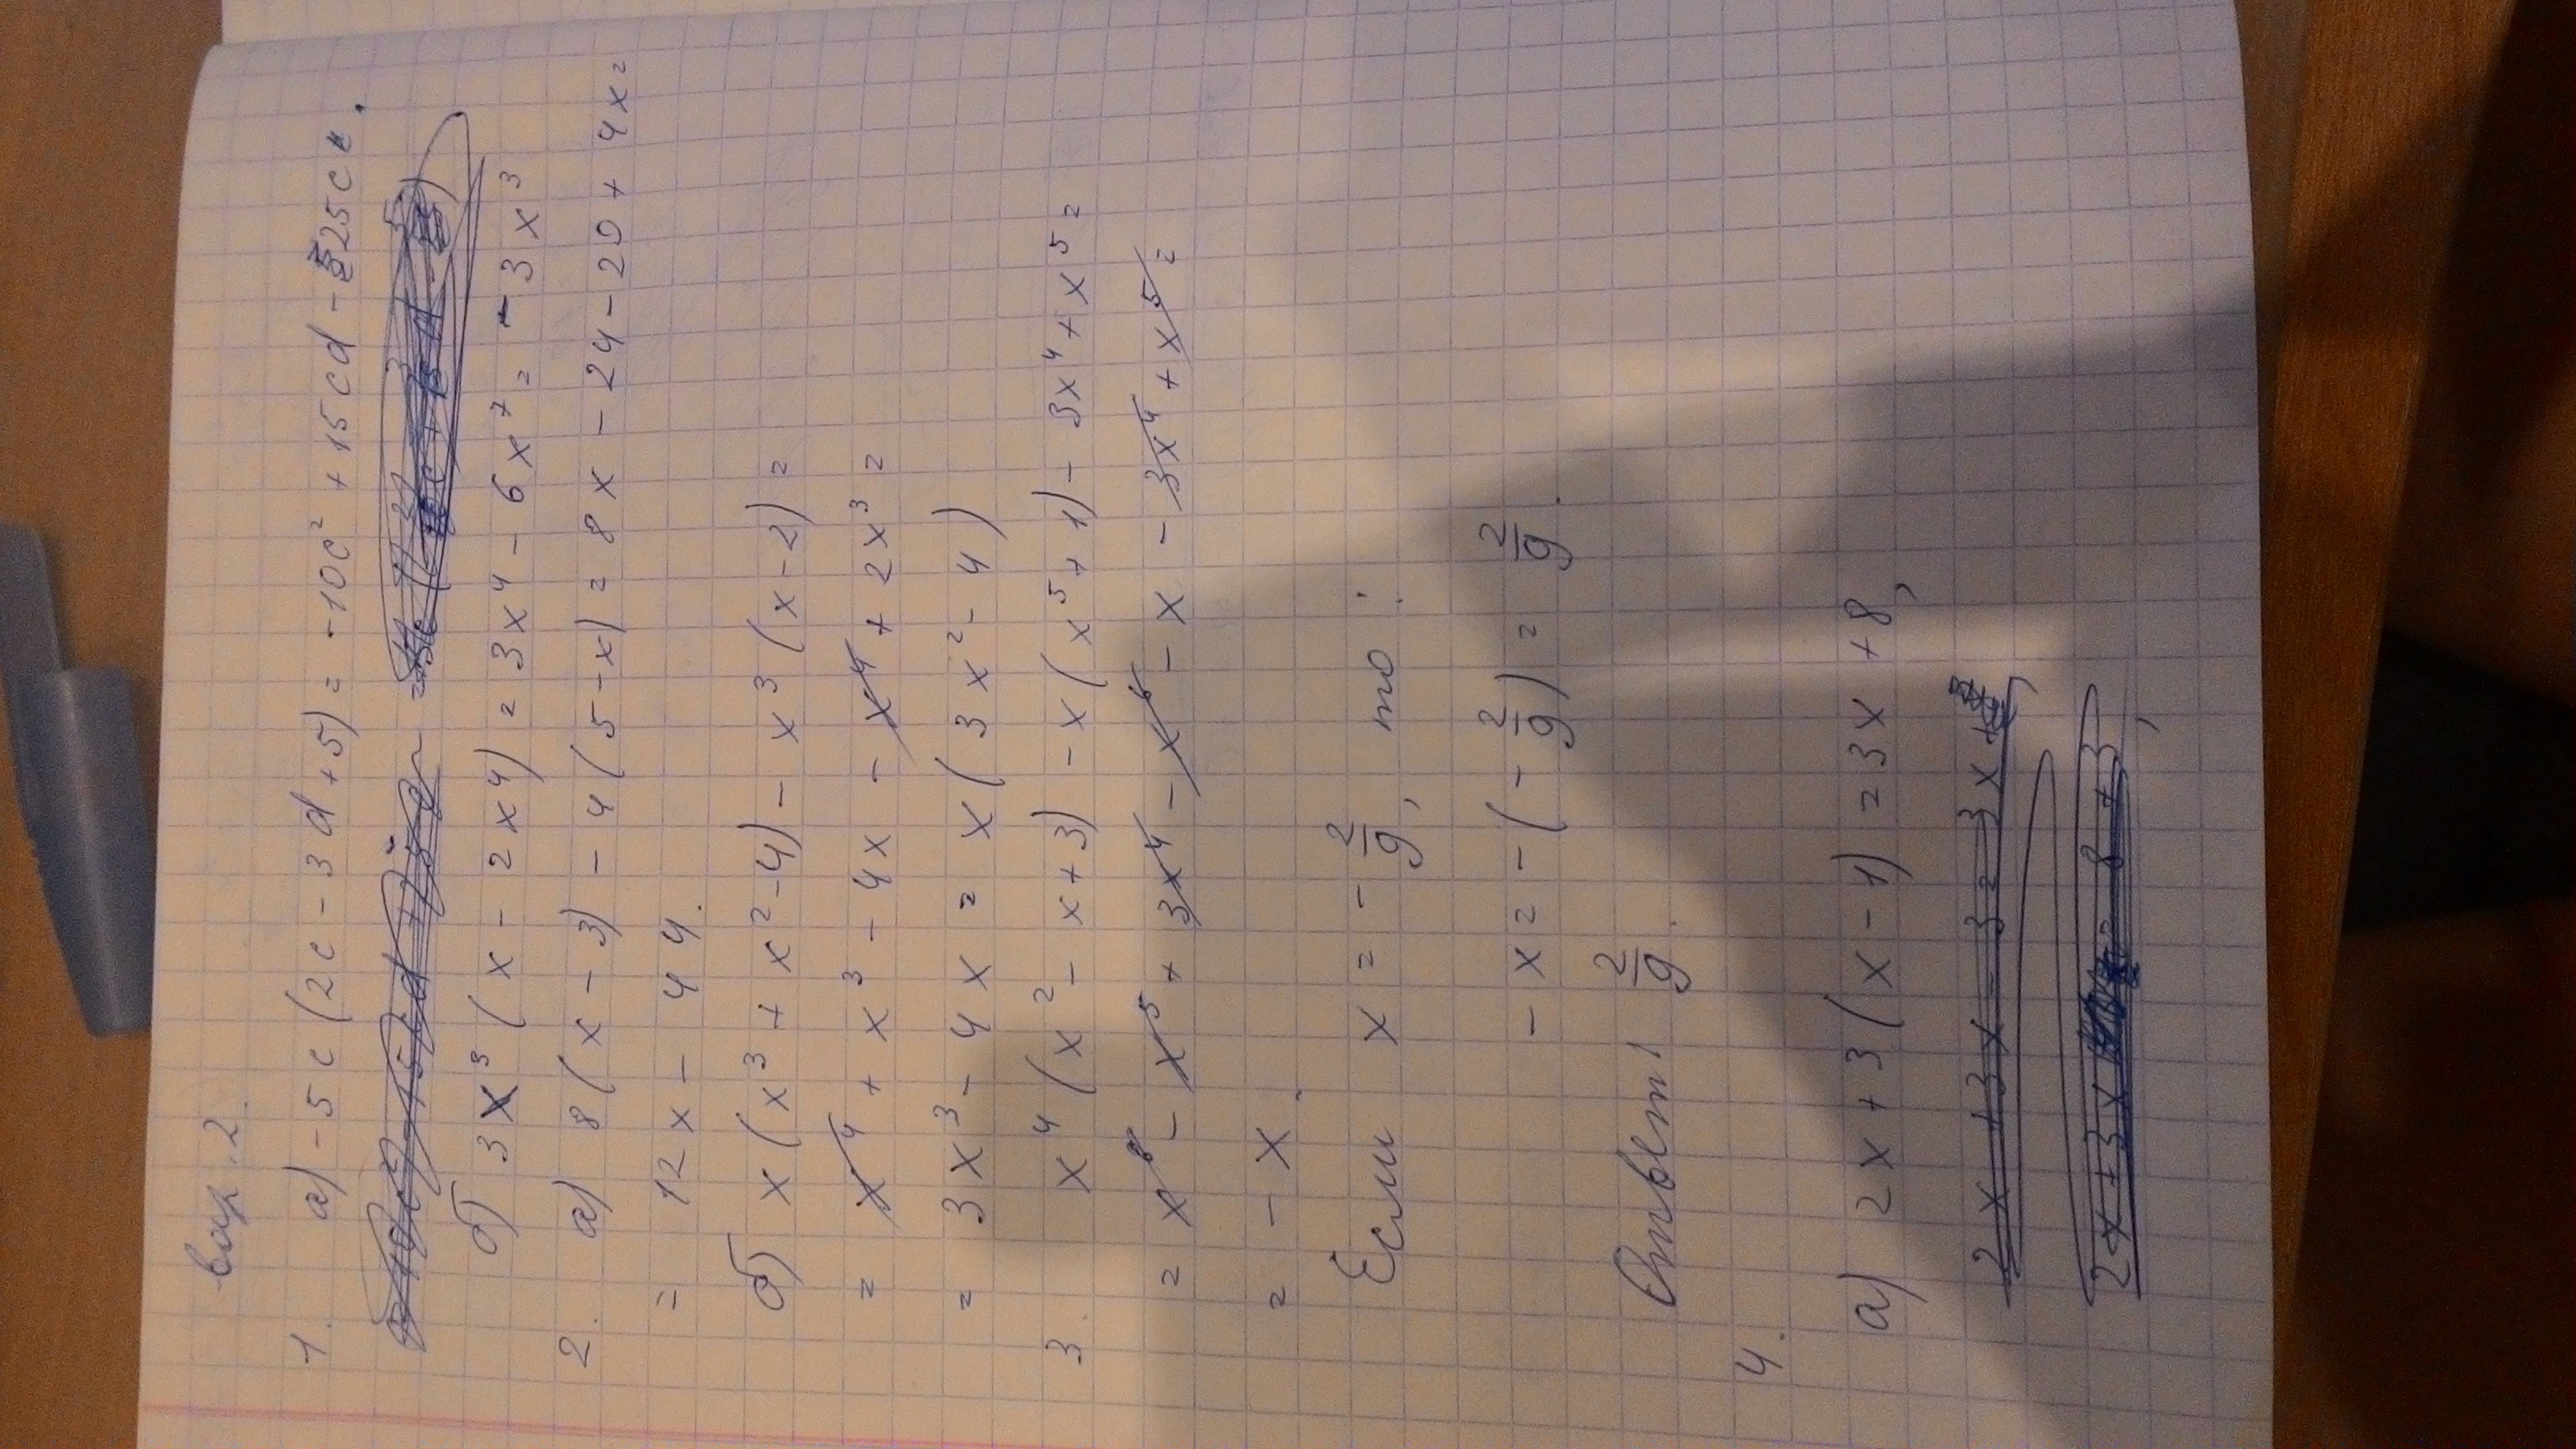 вар. 2.
1. а) -5c(2c-3d+5) = -10c² + 15cd - 25c.
б) 3x³(x-2x⁴) = 3x⁴ - 6x⁷ = -3x³
2. а) 8(x-3) - 4(5-x) = 8x - 24 - 20 + 4x =
= 12x - 44.
б) x(x³+x²-4) - x³(x-2) =
= x⁴ + x³ - 4x - x⁴ + 2x³ =
= 3x³ - 4x = x(3x²-4)
3. x⁴(x²-x+3) - x(x⁵+1) - 3x⁴ + x⁵ =
= x⁶ - x⁵ + 3x⁴ - x⁶ - x - 3x⁴ + x⁵ =
= -x.
Если x = -2/9, то:
-x = -(-2/9) = 2/9.
Ответ: 2/9.
4.
а) 2x+3(x-1) = 3x+8,
2x+3x-3=3x
2x+3x = 8+3,